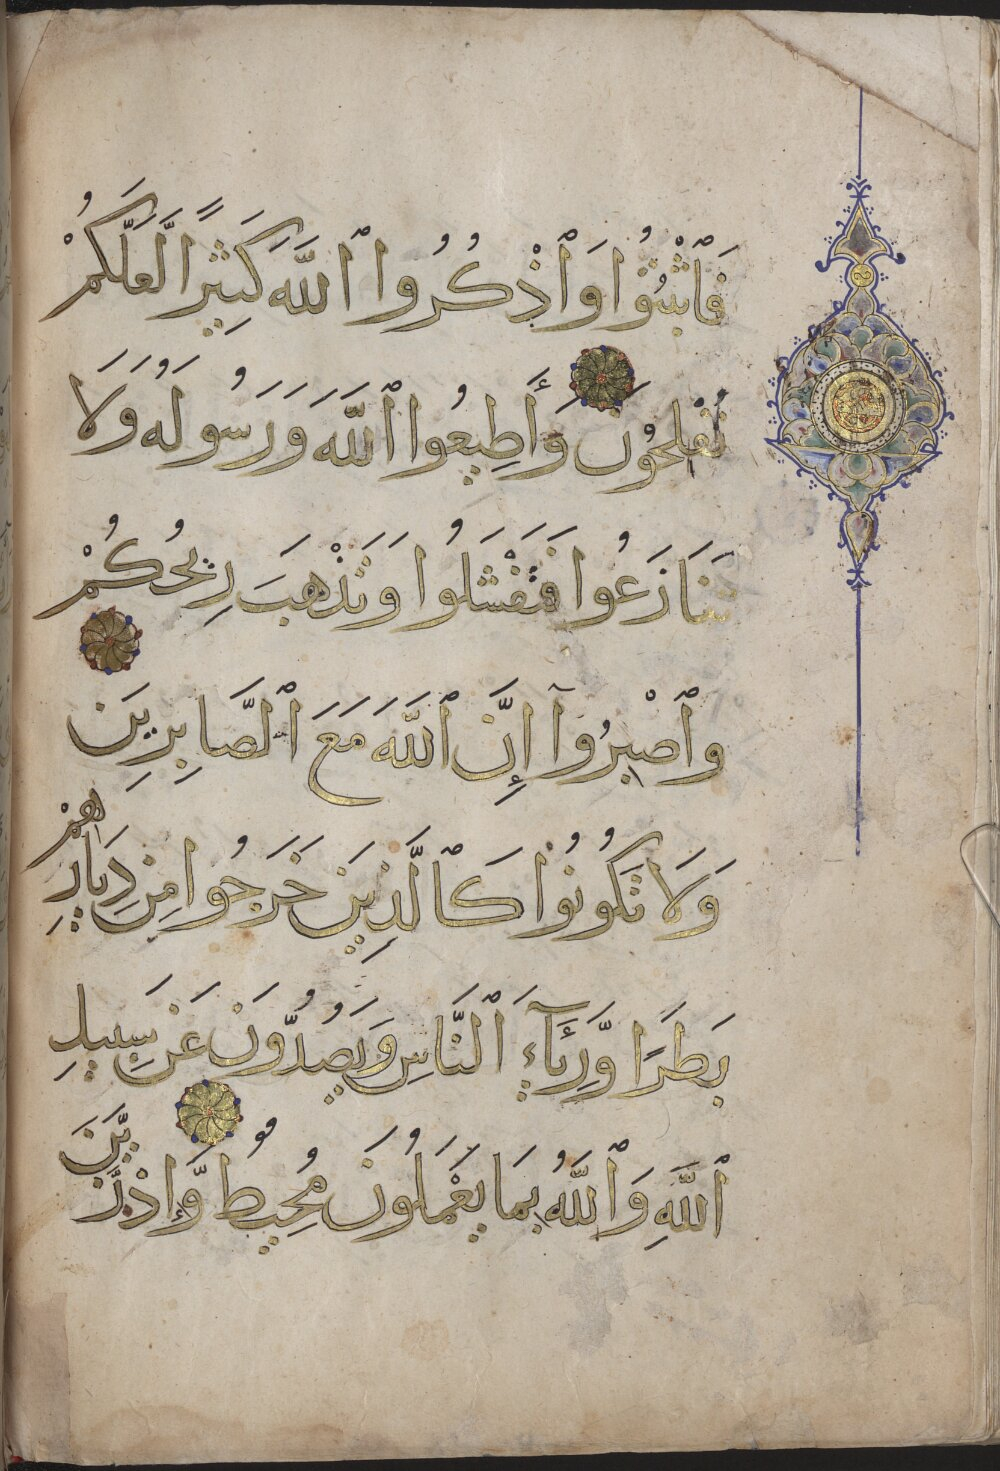 فَٱثْبُتُوا۟ وَٱذْكُرُوا ٱللَّهَ كَثِيرًا لَّعَلَّكُمْ
تُفْلِحُونَ وَأَطِيعُوا ٱللَّهَ وَرَسُولَهُ وَلَا
تَنَازَعُوا فَتَفْشَلُوا وَتَذْهَبَ رِيحُكُمْ
وَٱصْبِرُوٓا إِنَّ ٱللَّهَ مَعَ ٱلصَّابِرِينَ
وَلَا تَكُونُوا كَٱلَّذِينَ خَرَجُوا مِن دِيَارِهِمْ
بَطَرًا وَّرِئَآءَ ٱلنَّاسِ وَيَصُدُّونَ عَن سَبِيلِ
ٱللَّهِ وَٱللَّهُ بِمَا يَعْمَلُونَ مُحِيطٌ وَّإِذْ زَيَّنَ